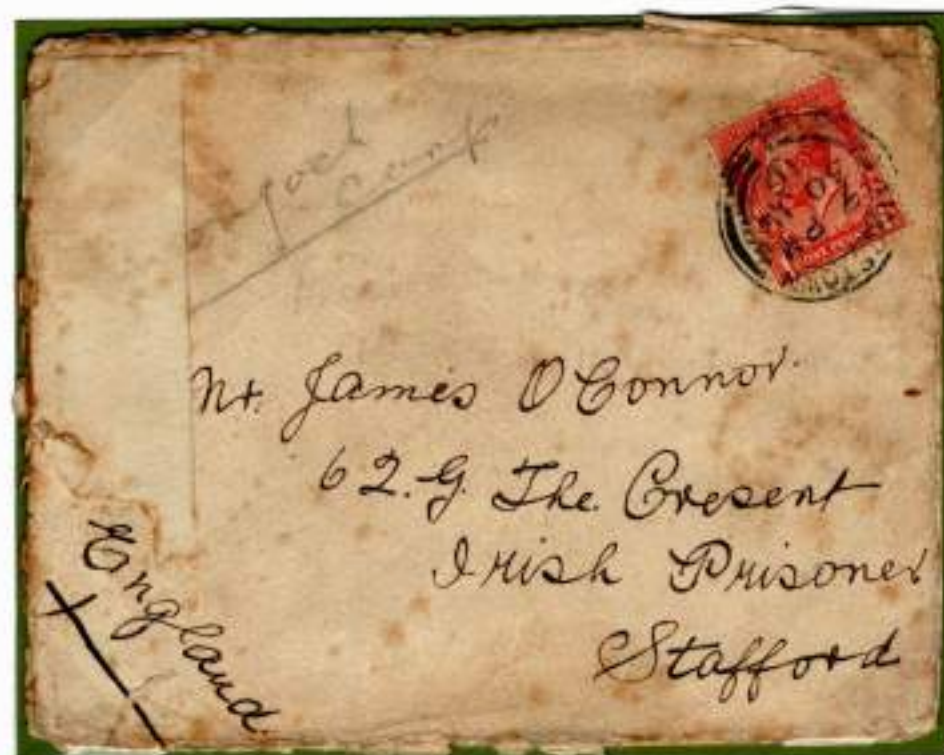 Camp
Mr. James O Connor.
62. G. The. Cresent
Irish Prisoner
Stafford
England